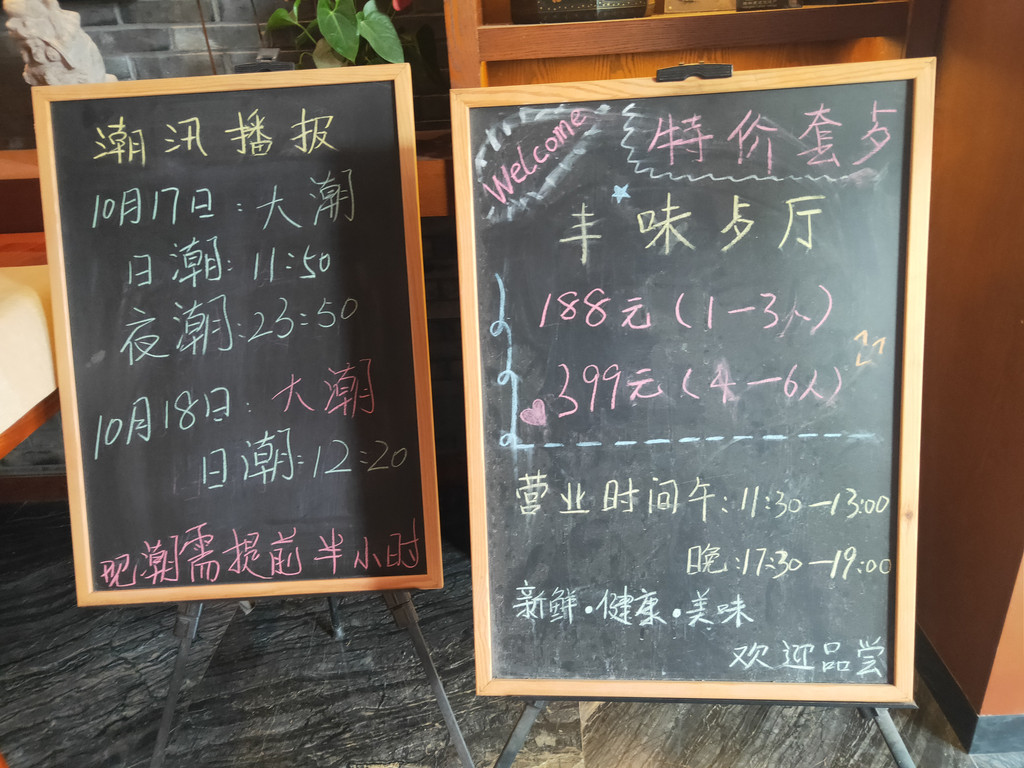 潮汛播报
10月17日:大潮
日潮:11:50
夜潮:23:50
10月18日:大潮
日潮:12:20
观潮需提前半小时
Welcome
特价套歺
丰味歺厅
188元(1-3人)
399元(4-6人)
营业时间午:11:30-13:00
晚:17:30-19:00
新鲜·健康·美味
欢迎品尝